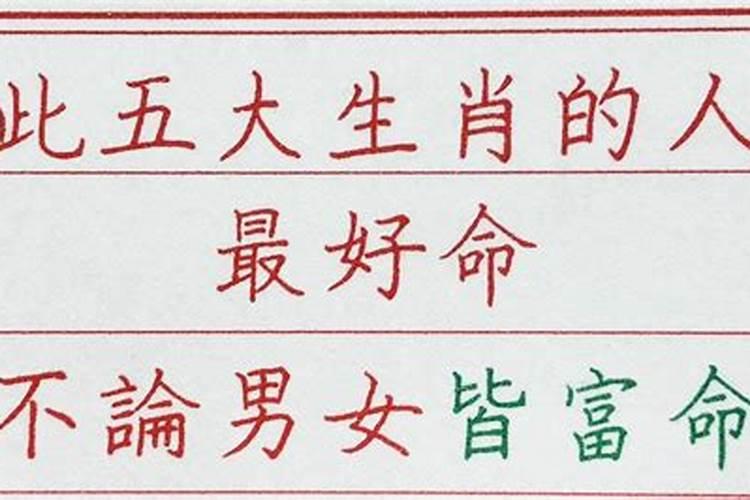 此五大生肖的人
最好命
不論男女皆富命